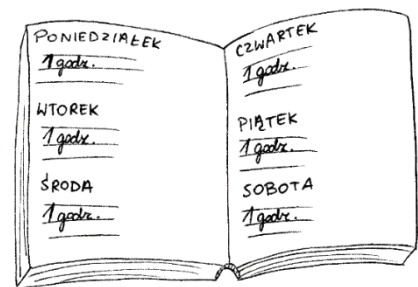 PONIEDZIAŁEK
1 godz.
WTOREK
1 godz.
ŚRODA
1 godz.
CZWARTEK
1 godz.
PIĄTEK
1 godz.
SOBOTA
1 godz.